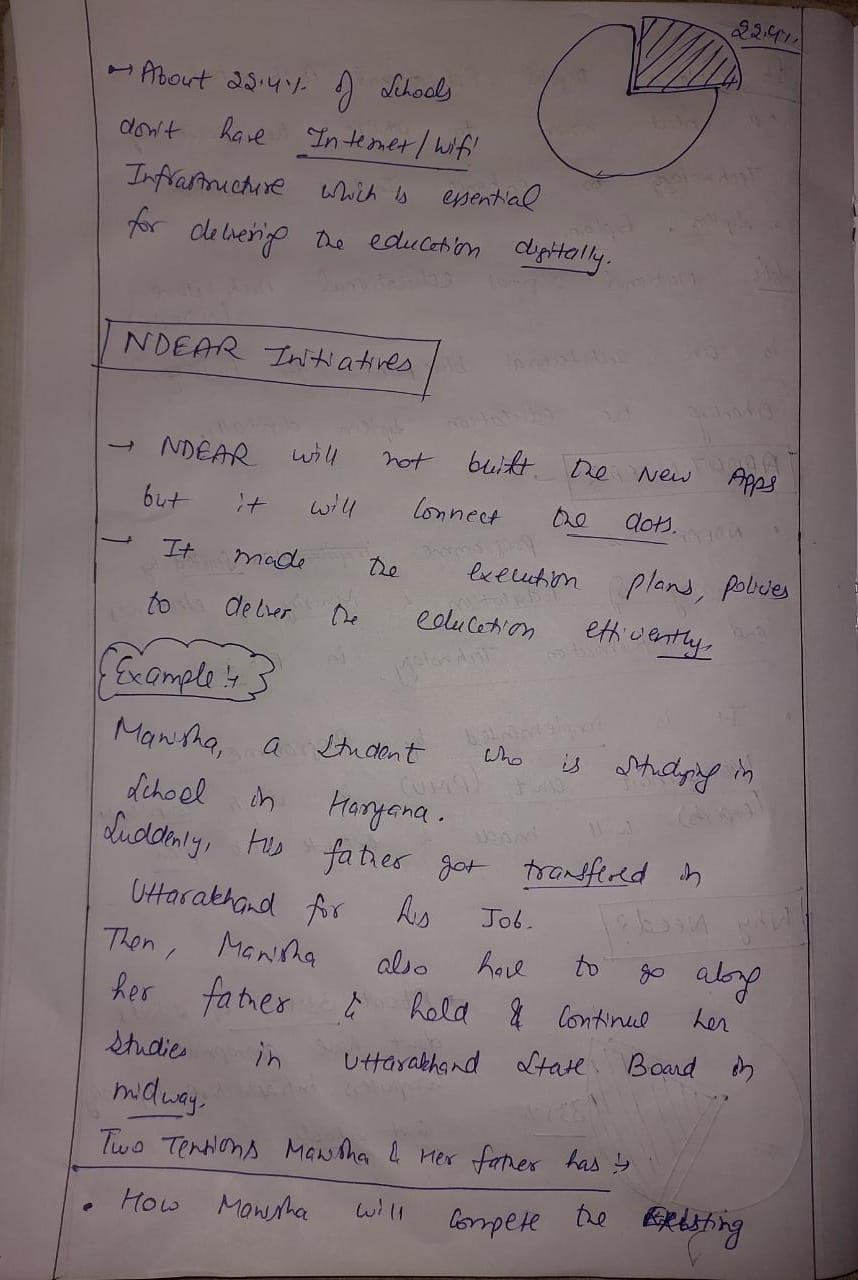 22.4%
→ About 22.4% of Schools
don't have Internet/wifi
Infrastructure which is essential
for delivering the education digitally.
NDEAR Initiatives
→ NDEAR will not built the New Apps
but it will connect the dots.
→ It made the execution plans, policies
to deliver the education efficiently.
Example :→
Manisha, a student who is studying in
School in Haryana.
Suddenly, His father got transfered in
Uttarakhand for his Job.
Then, Manisha also have to go along
her father & hold & continue her
studies in Uttarakhand State Board in
midway.
Two Tentions Manisha & Her father has :→
• How Manisha will compete the existing